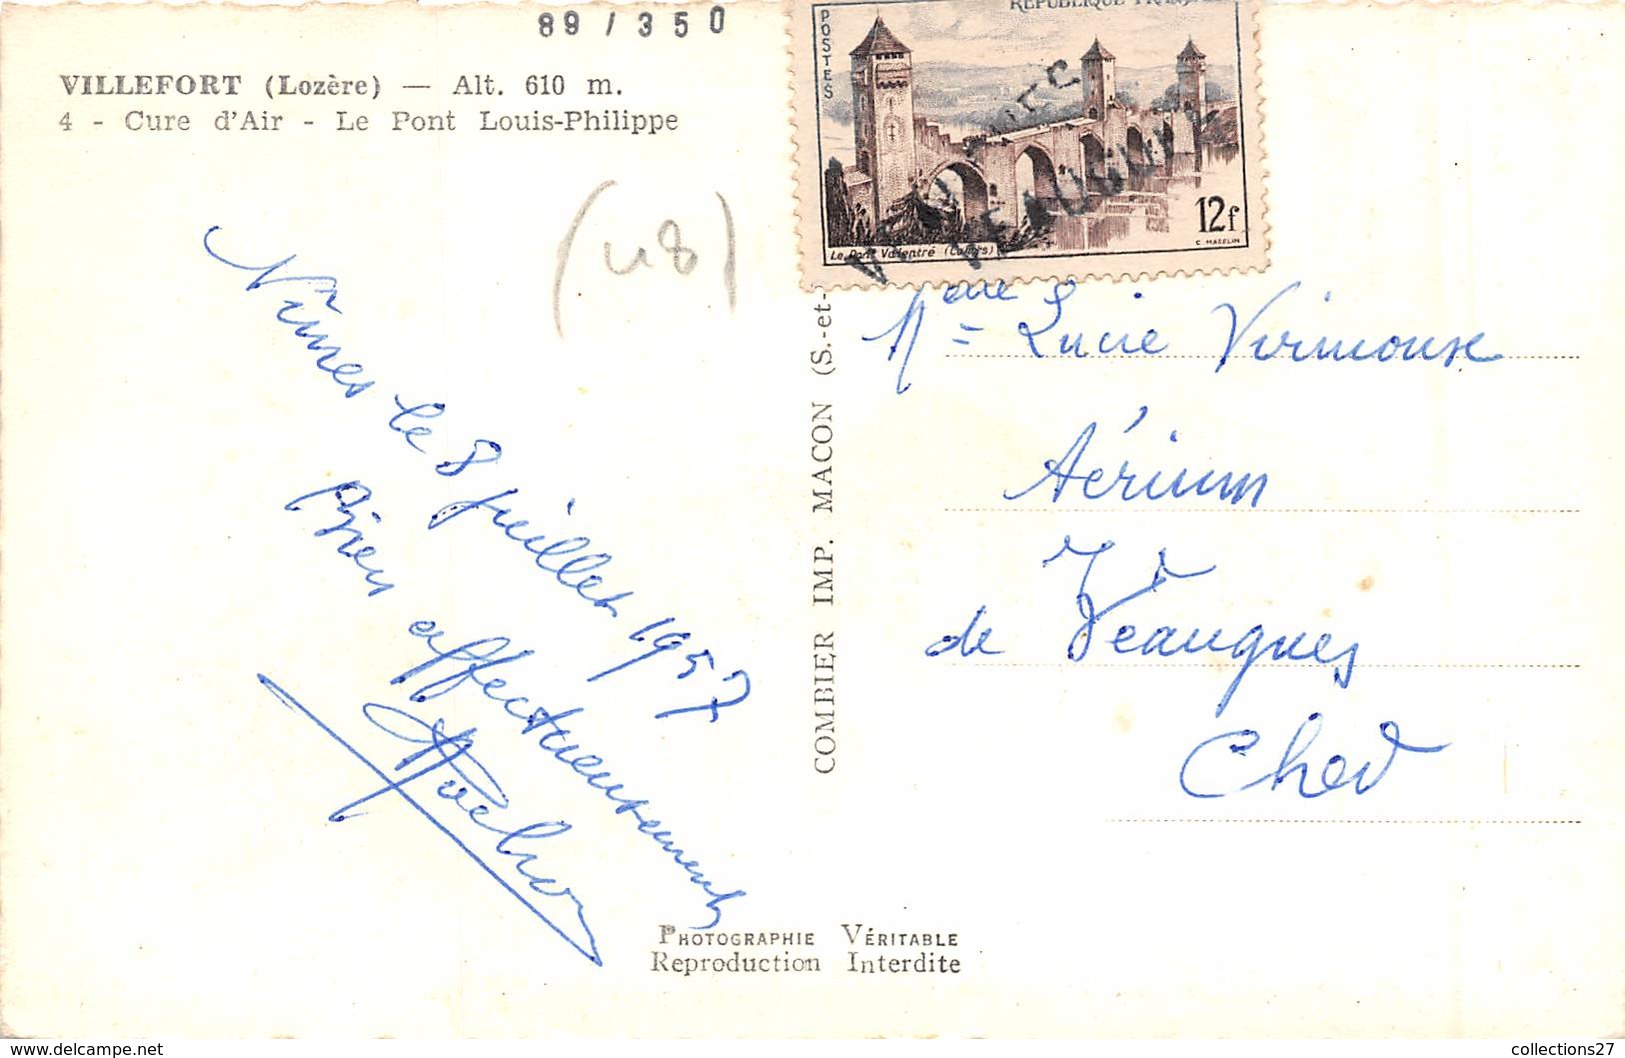 89 / 350
VILLEFORT (Lozère) — Alt. 610 m.
4 - Cure d'Air - Le Pont Louis-Philippe
(48)
Nîmes le 8 juillet 1957
Bien affectueusement
POSTES
REPUBLIQUE
12f
Le Pont Valentré (Cahors)
C. MAZELIN
BEAUCAIRE
COMBIER IMP. MACON (S.-et-
Mme Lucie Virmouse
Aérium
de Veaugues
Cher
PHOTOGRAPHIE VÉRITABLE
Reproduction Interdite
www.delcampe.net
collections27